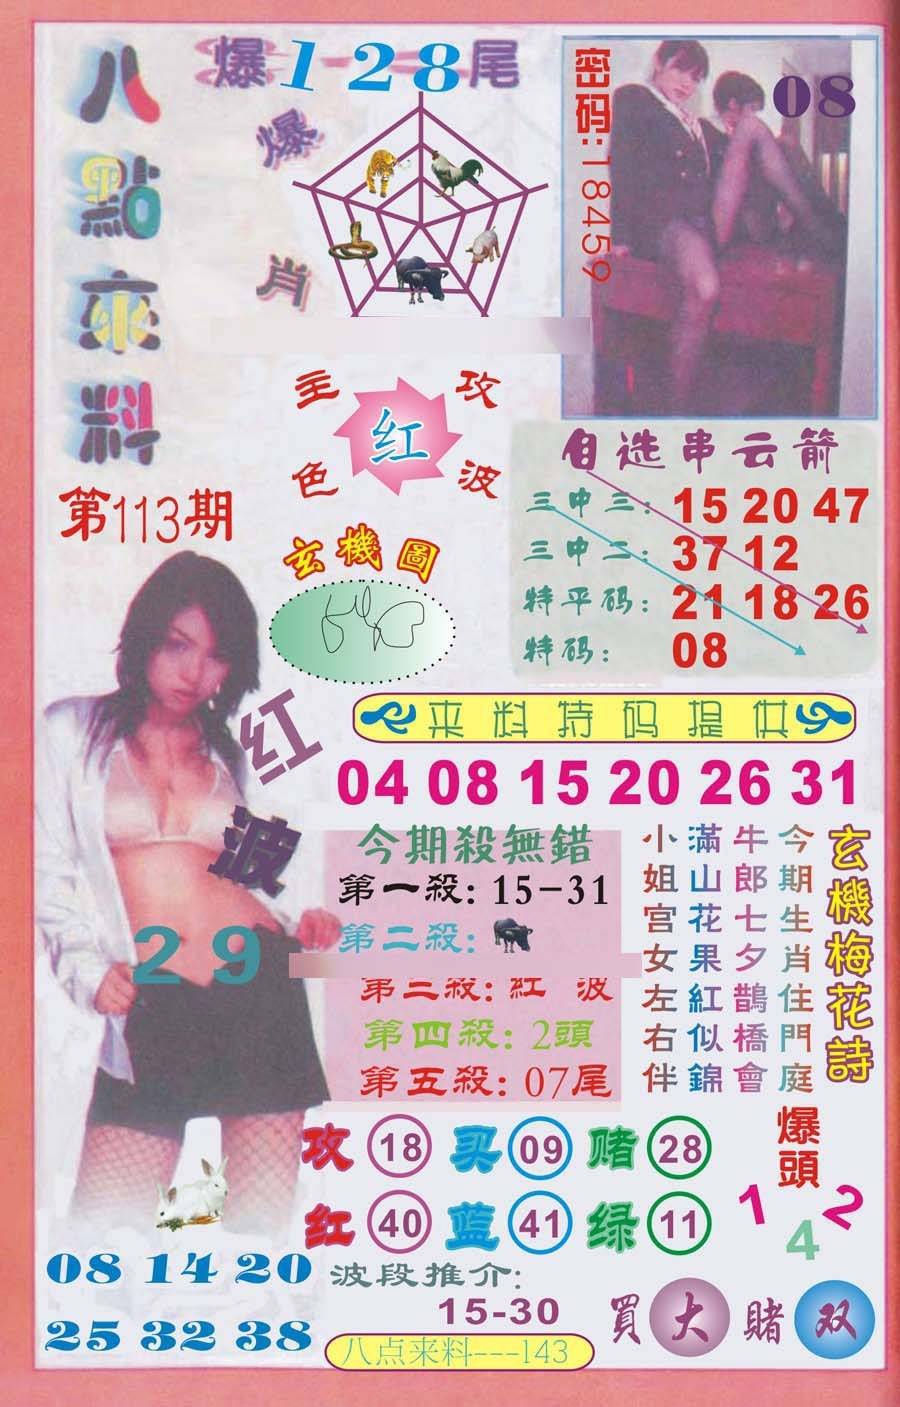 八點來料
爆128尾
爆肖
密码:18459
08
主攻
红
色波
第113期
玄機圖
自选串云箭
三中三: 15 20 47
三中二: 37 12
特平码: 21 18 26
特码: 08
来料特码提供
04 08 15 20 26 31
红波
29
今期殺無錯
第一殺: 15-31
第二殺:
第三殺: 紅 波
第四殺: 2頭
第五殺: 07尾
玄機梅花詩
今期生肖住門庭
牛郎七夕鵲橋會
滿山花果紅似錦
小姐宫女左右伴
攻 18 买 09 赌 28
红 40 蓝 41 绿 11
爆頭
1 4 2
08 14 20
25 32 38
波段推介:
15-30
買大賭双
八点来料---143